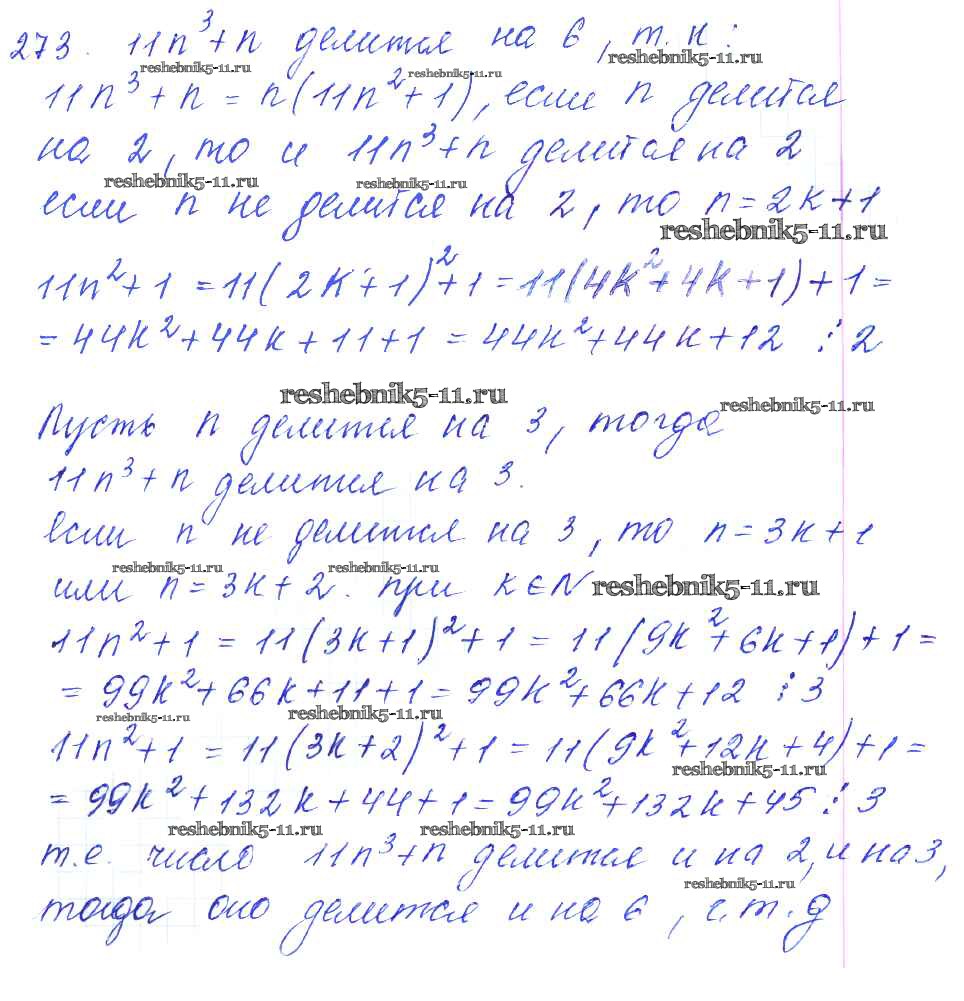 273. 11n³+n делится на 6, т.к:
reshebnik5-11.ru reshebnik5-11.ru reshebnik5-11.ru
11n³+n = n(11n²+1), если n делится
на 2, то и 11n³+n делится на 2
reshebnik5-11.ru reshebnik5-11.ru
если n не делится на 2, то n=2k+1
reshebnik5-11.ru
11n²+1 = 11(2k+1)²+1 = 11(4k²+4k+1)+1 =
= 44k²+44k+11+1 = 44k²+44k+12 ⋮ 2
reshebnik5-11.ru reshebnik5-11.ru
Пусть n делится на 3, тогда
11n³+n делится на 3.
если n не делится на 3, то n=3k+1
reshebnik5-11.ru reshebnik5-11.ru
или n=3k+2. при k∈N reshebnik5-11.ru
11n²+1 = 11(3k+1)²+1 = 11(9k²+6k+1)+1 =
= 99k²+66k+11+1 = 99k²+66k+12 ⋮ 3
reshebnik5-11.ru reshebnik5-11.ru
11n²+1 = 11(3k+2)²+1 = 11(9k²+12k+4)+1 =
reshebnik5-11.ru
= 99k²+132k+44+1 = 99k²+132k+45 ⋮ 3
reshebnik5-11.ru reshebnik5-11.ru
т.е. число 11n³+n делится и на 2, и на 3,
reshebnik5-11.ru
тогда оно делится и на 6, ч.т.д